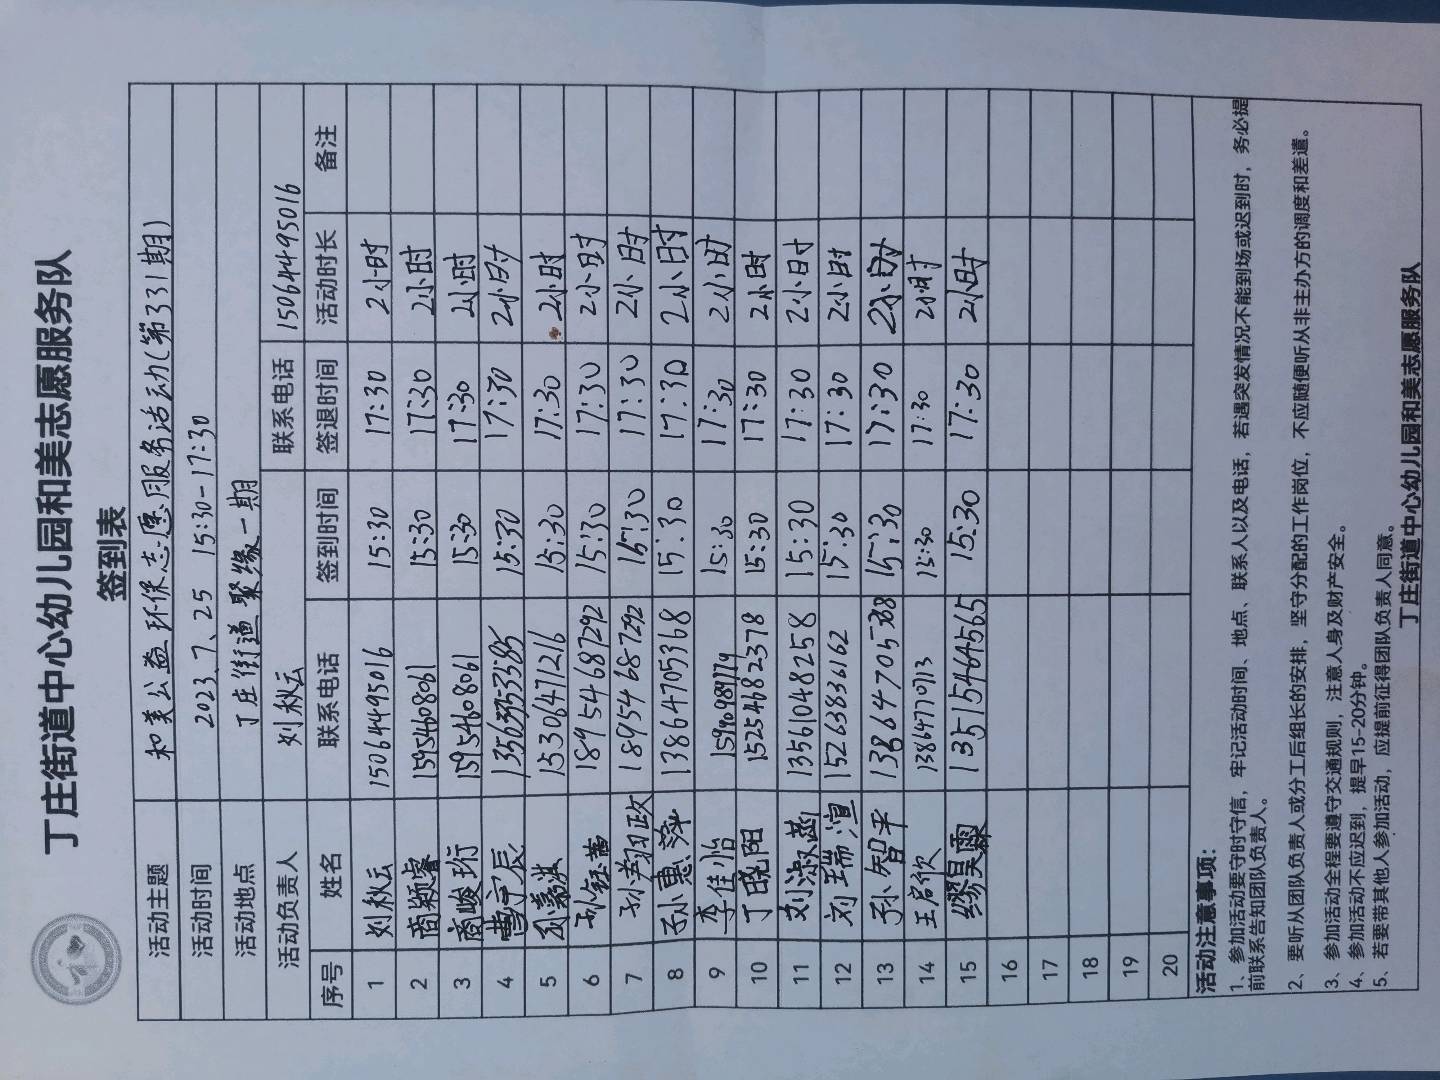 丁庄街道中心幼儿园和美志愿服务队
签到表
活动主题 和美公益环保志愿服务活动(第331期)
活动时间 2023、7、25 15:30-17:30
活动地点 丁庄街道聚缘一期
活动负责人 刘秋云 联系电话 15064495016
序号 姓名 联系电话 签到时间 签退时间 活动时长 备注
1 刘秋云 15064495016 15:30 17:30 2小时
2 商颖睿 15954608061 15:30 17:30 2小时
3 商峻珩 15954608061 15:30 17:30 2小时
4 曹宇辰 15:30 17:30 2小时
5 15306471216 15:30 17:30 2小时
6 孙钰茜 18954687292 15:30 17:30 2小时
7 孙翔政 18954687292 15:30 17:30 2小时
8 孙惠萍 13864705368 15:30 17:30 2小时
9 李佳怡 15:30 17:30 2小时
10 丁晓阳 15254682378 15:30 17:30 2小时
11 刘淑菡 13561048258 15:30 17:30 2小时
12 刘瑞渲 15263836162 15:30 17:30 2小时
13 孙智平 15:30 17:30 2小时
14 王启欣 15:30 17:30 2小时
15 缪昊霖 13515464565 15:30 17:30 2小时
16
17
18
19
20
活动注意事项:
1、参加活动要守时守信，牢记活动时间、地点、联系人以及电话，若遇突发情况不能到场或迟到时，务必提
前联系告知团队负责人。
2、要听从团队负责人或分工后组长的安排，坚守分配的工作岗位，不应随便听从非主办方的调度和差遣。
3、参加活动全程要遵守交通规则，注意人身及财产安全。
4、参加活动不应迟到，提早15-20分钟。
5、若要带其他人参加活动，应提前征得团队负责人同意。
丁庄街道中心幼儿园和美志愿服务队